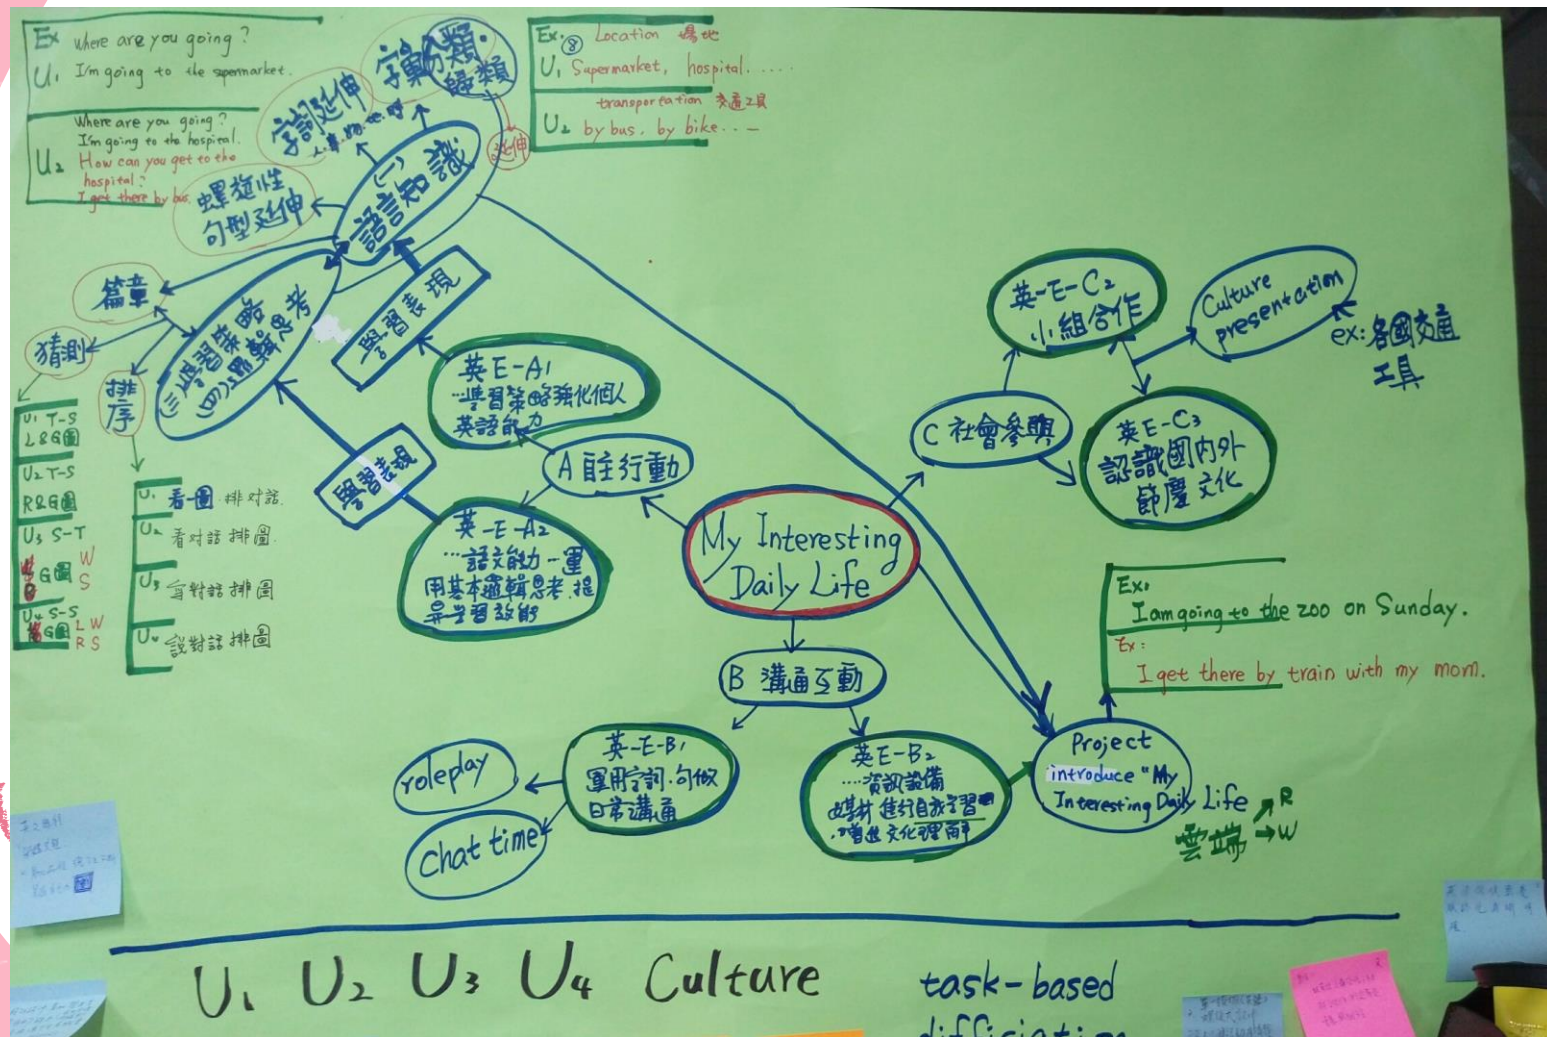 Ex Where are you going?
U1 I'm going to the supermarket.
Where are you going?
I'm going to the hospital.
U2 How can you get to the
hospital?
I get there by bus.
字彙分類．
歸類
字詞延伸
人．事．物．地．時
延伸
Ex. ⑧ Location 場地
U1 Supermarket, hospital......
transportation 交通工具
U2 by bus, by bike...
(一)
語言知識
螺旋性
句型延伸
篇章
猜測
排序
(三)學習策略
(四)邏輯思考
學習表現
學習表現
U1 T-S
L&G圖
U2 T-S
R&G圖
U3 S-T
G圖 W
S
U4 S-S
G圖 L W
R S
U1 看圖 排対話.
U2 看対話 排圖.
U3 寫對話 排圖
U4 說對話 排圖
英E-A1
…學習策略強化個人
英語能力
A 自主行動
英-E-A2
…語文能力一運
用基本邏輯思考.提
昇學習效能
My Interesting
Daily Life
C 社會參與
英-E-C2
小組合作
Culture
presentation
ex:各國交通
工具
英E-C3
認識國内外
節慶文化
B 溝通互動
英-E-B1
運用字詞.句做
日常溝通
roleplay
Chat time
英E-B2
....資訊設備
媒材 進行自我学習
增進文化理解
Project
introduce "My
Interesting Daily Life
雲端 →R
→W
Ex:
I am going to the zoo on Sunday.
Ex:
I get there by train with my mom.
U1 U2 U3 U4 Culture
task-based